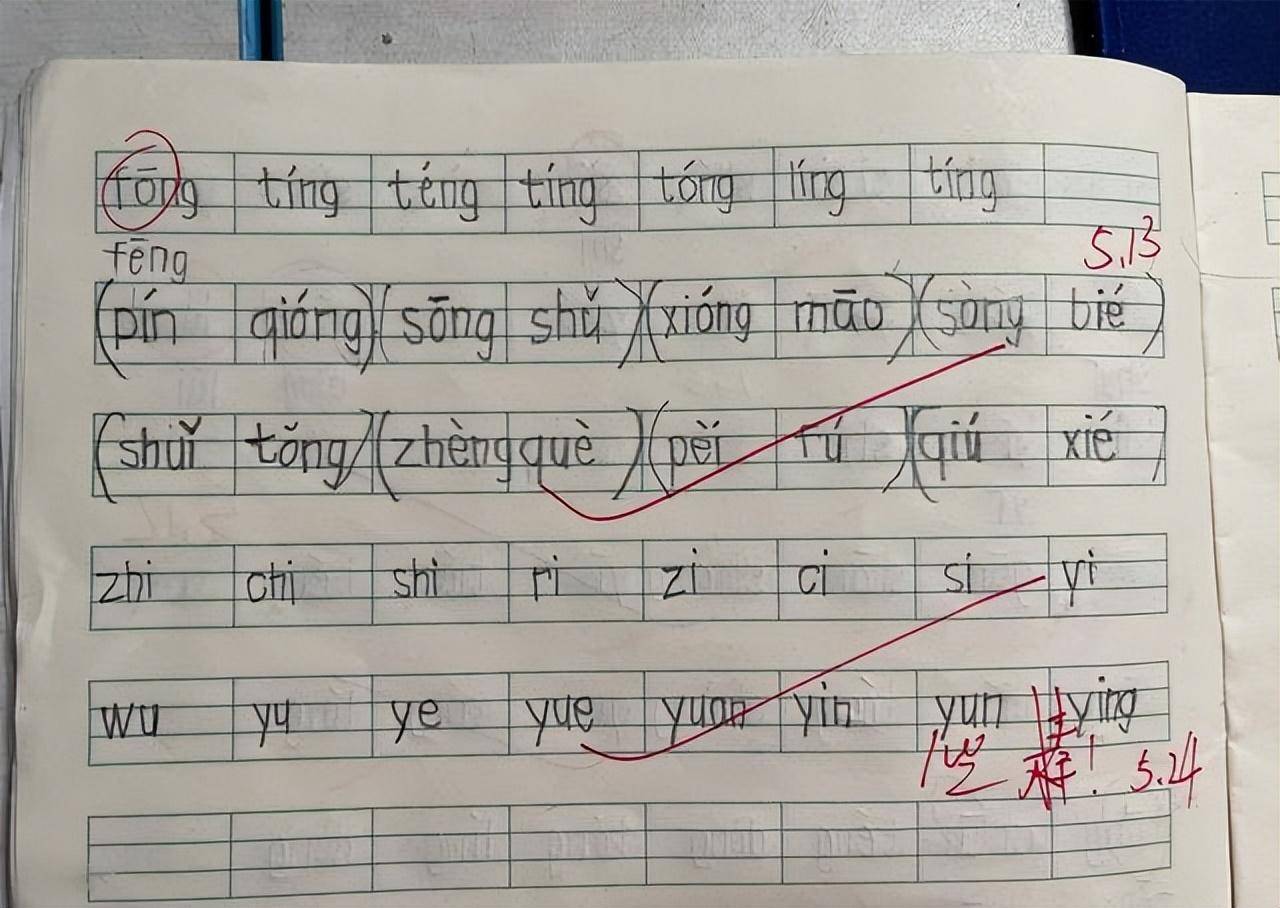 fōng tíng téng tíng tóng líng tíng
fēng
5.13
(pín qióng)(sōng shǔ)(xióng māo)(sòng bié)
(shuǐ tǒng)(zhèng què)(pèi fú)(qiú xié)
zhi chi shi ri zi ci si yi
wu yu ye yue yuan yin yun ying
5.24